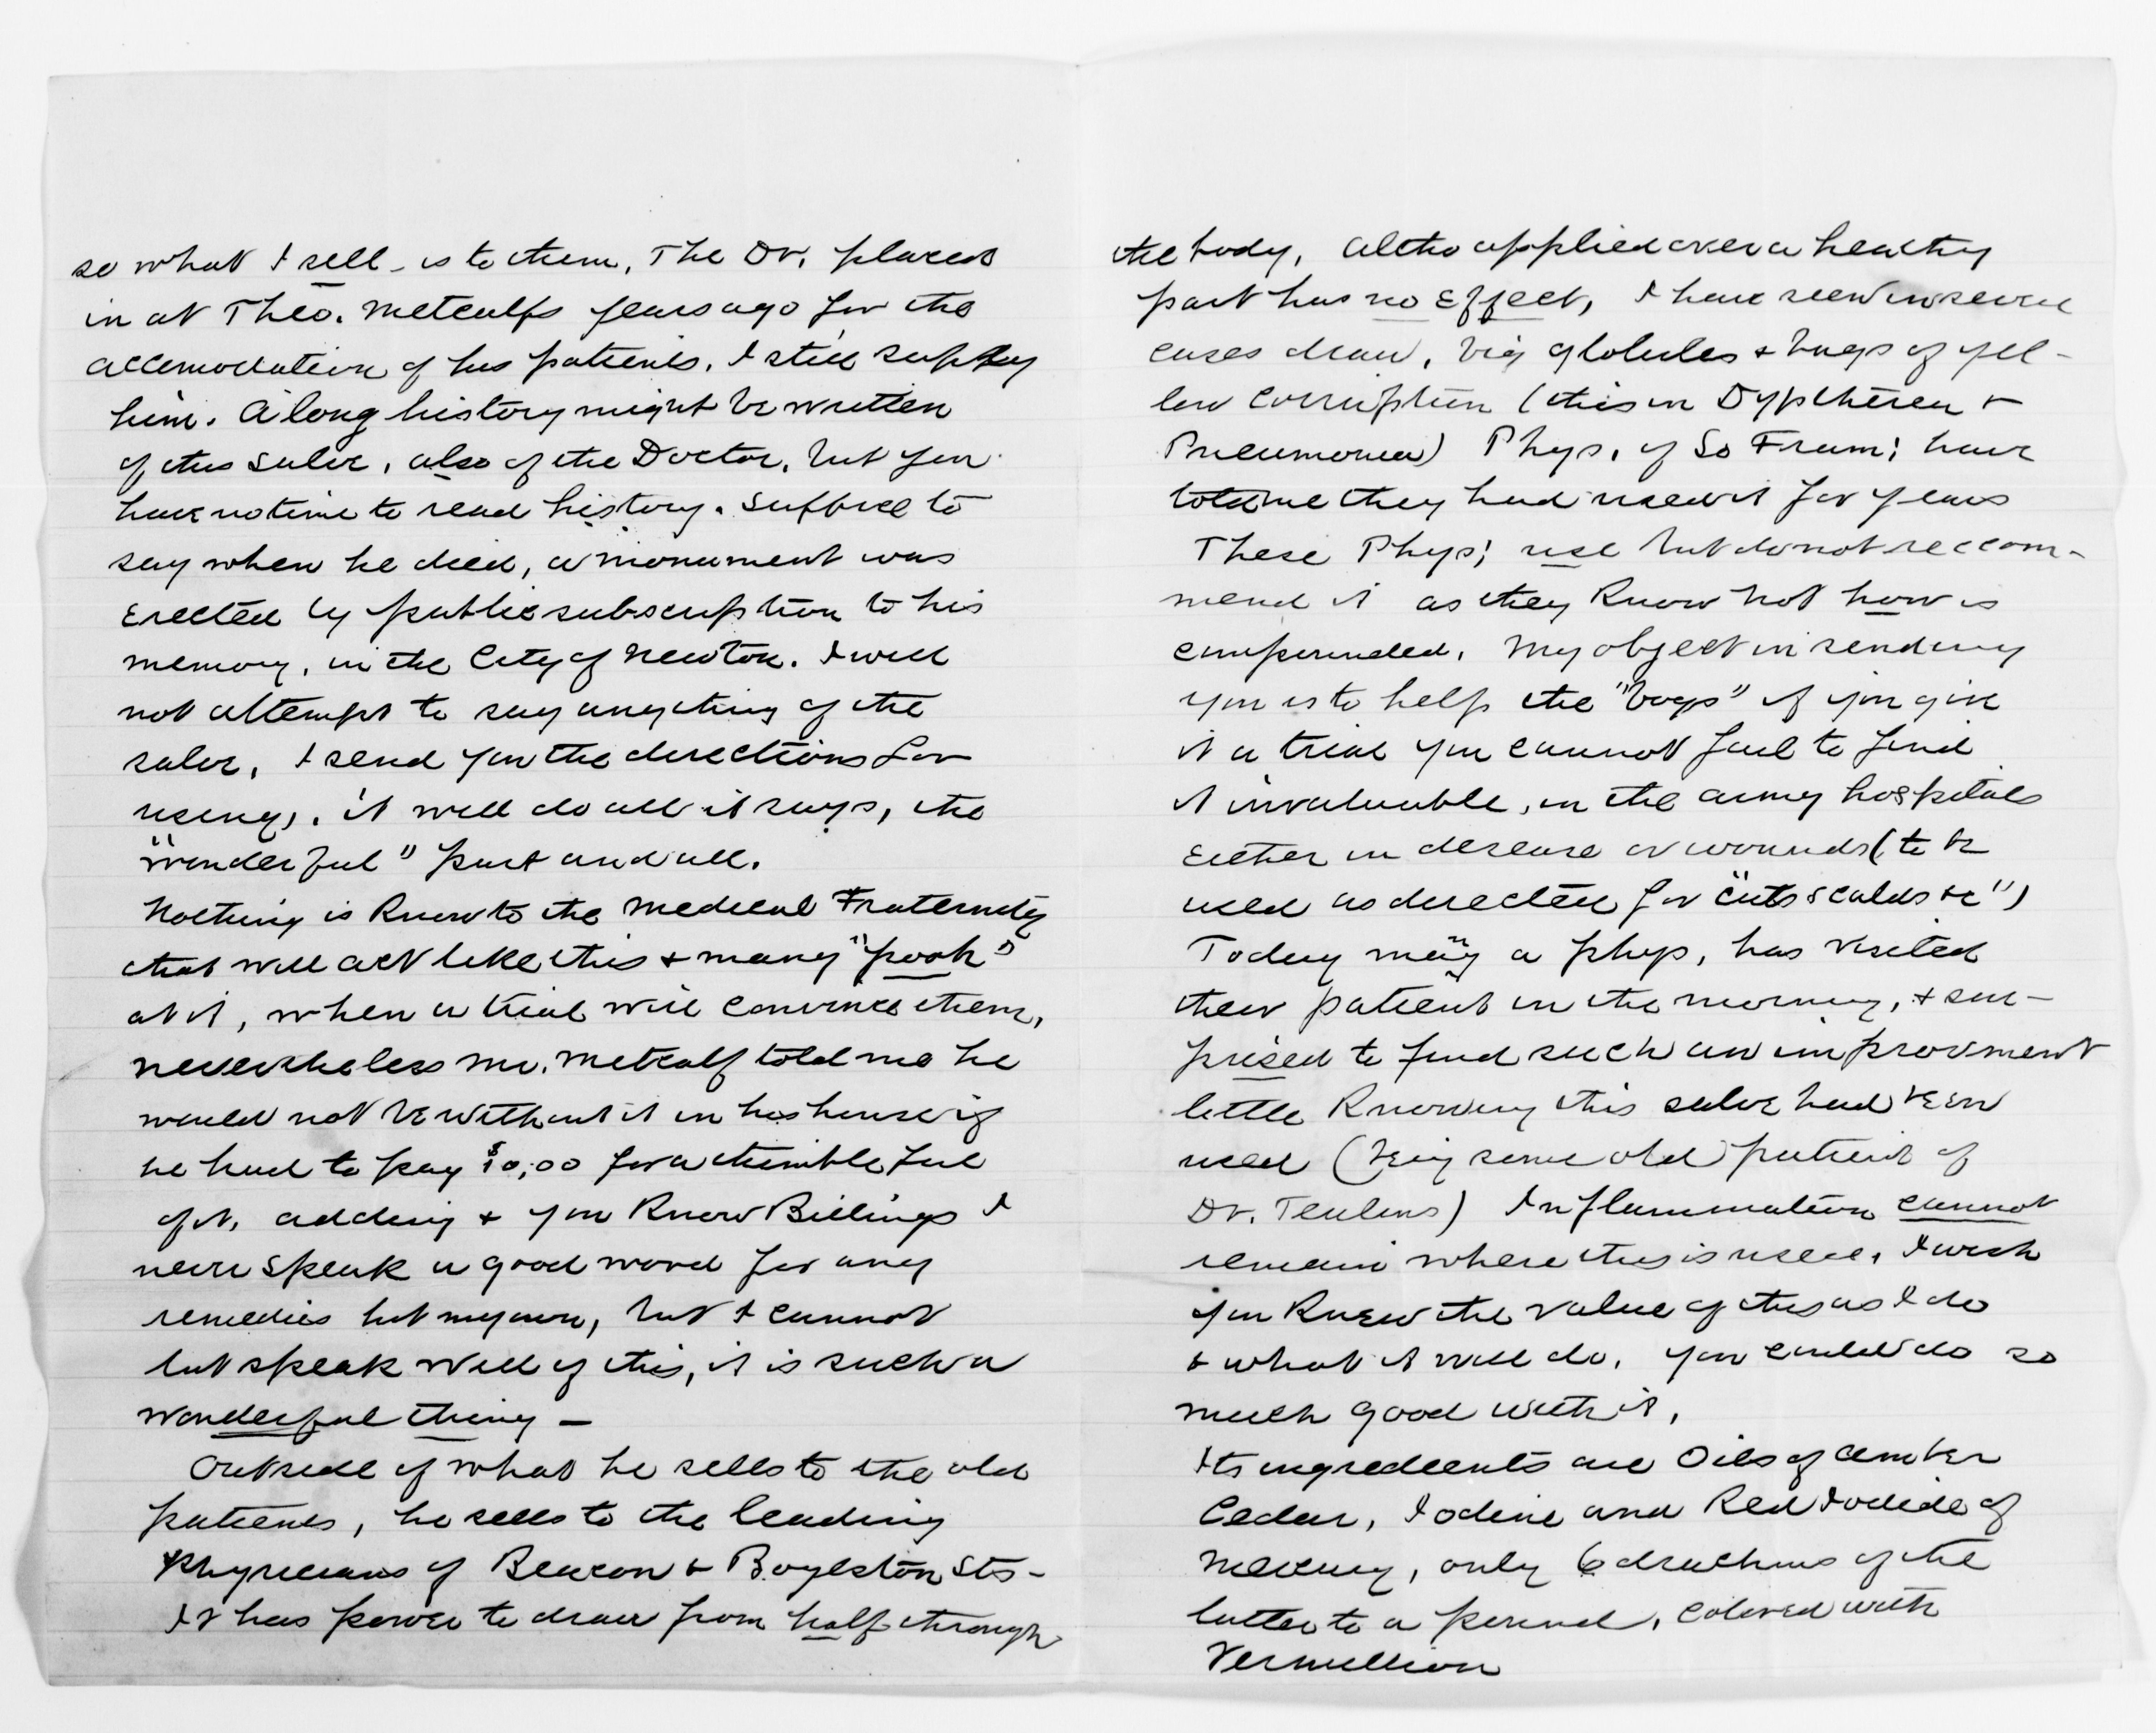 so what I sell - is to them, The Dr. placed
in at Theo. Metcalfs years ago for the
accomodation of his patients. I still supply
him. A long history might be written
of this salve, also of the Doctor, but you
have no time to read history. Suffice to
say when he died, a monument was
Erected by public subscription to his
memory, in the City of Newton. I will
not attempt to say anything of the
salve, I send you the directions for
using, it will do all it says, the
"wonderful" part and all.
Nothing is know to the Medical Fraternity
that will act like this & many "pooh"
at it, when a trial will convince them,
nevertheless Mr. Metcalf told me he
would not be without it in his house if
he had to pay $10,00 for a thimble full
of it, adding & you Know Billings I
never speak a good word for any
remedies but my own, but I cannot
but speak well of this, it is such a
wonderful thing -
Outside of what he sells to the old
patients, he sells to the leading
Physicians of Beacon & Boylston Sts -
It has power to draw from half through
the body, altho applied over a healthy
part has no Effect, I have seen in severe
cases draw, big globules & bags of yel-
low corruption (this in Dyptherea &
Pneumonia) Phys. of So Fram; have
told me they had used it for years
These Phys; use but do not reccom-
mend it as they Know not how is
compounded. My object in sending
you is to help the "boys" if you give
it a trial you cannot fail to find
it invaluable, in the army hospitals
Either in desease or wounds (to be
used as directed for "cuts scalds &c")
Today many a phys, has visited
their patient in the morning, & sur-
prised to find such an improvment
little Knowing this salve had been
used (being some old patient of
Dr.        ) Inflammation cannot
remain where this is used, I wish
you Knew the value of this as I do
& what it will do, you could do so
much good with it,
Its ingredients are Oils of Amber
Cedar, Iodine and Red Iodide of
Mercury, only 6 drachms of the
latter to a pound, colored with
Vermillion